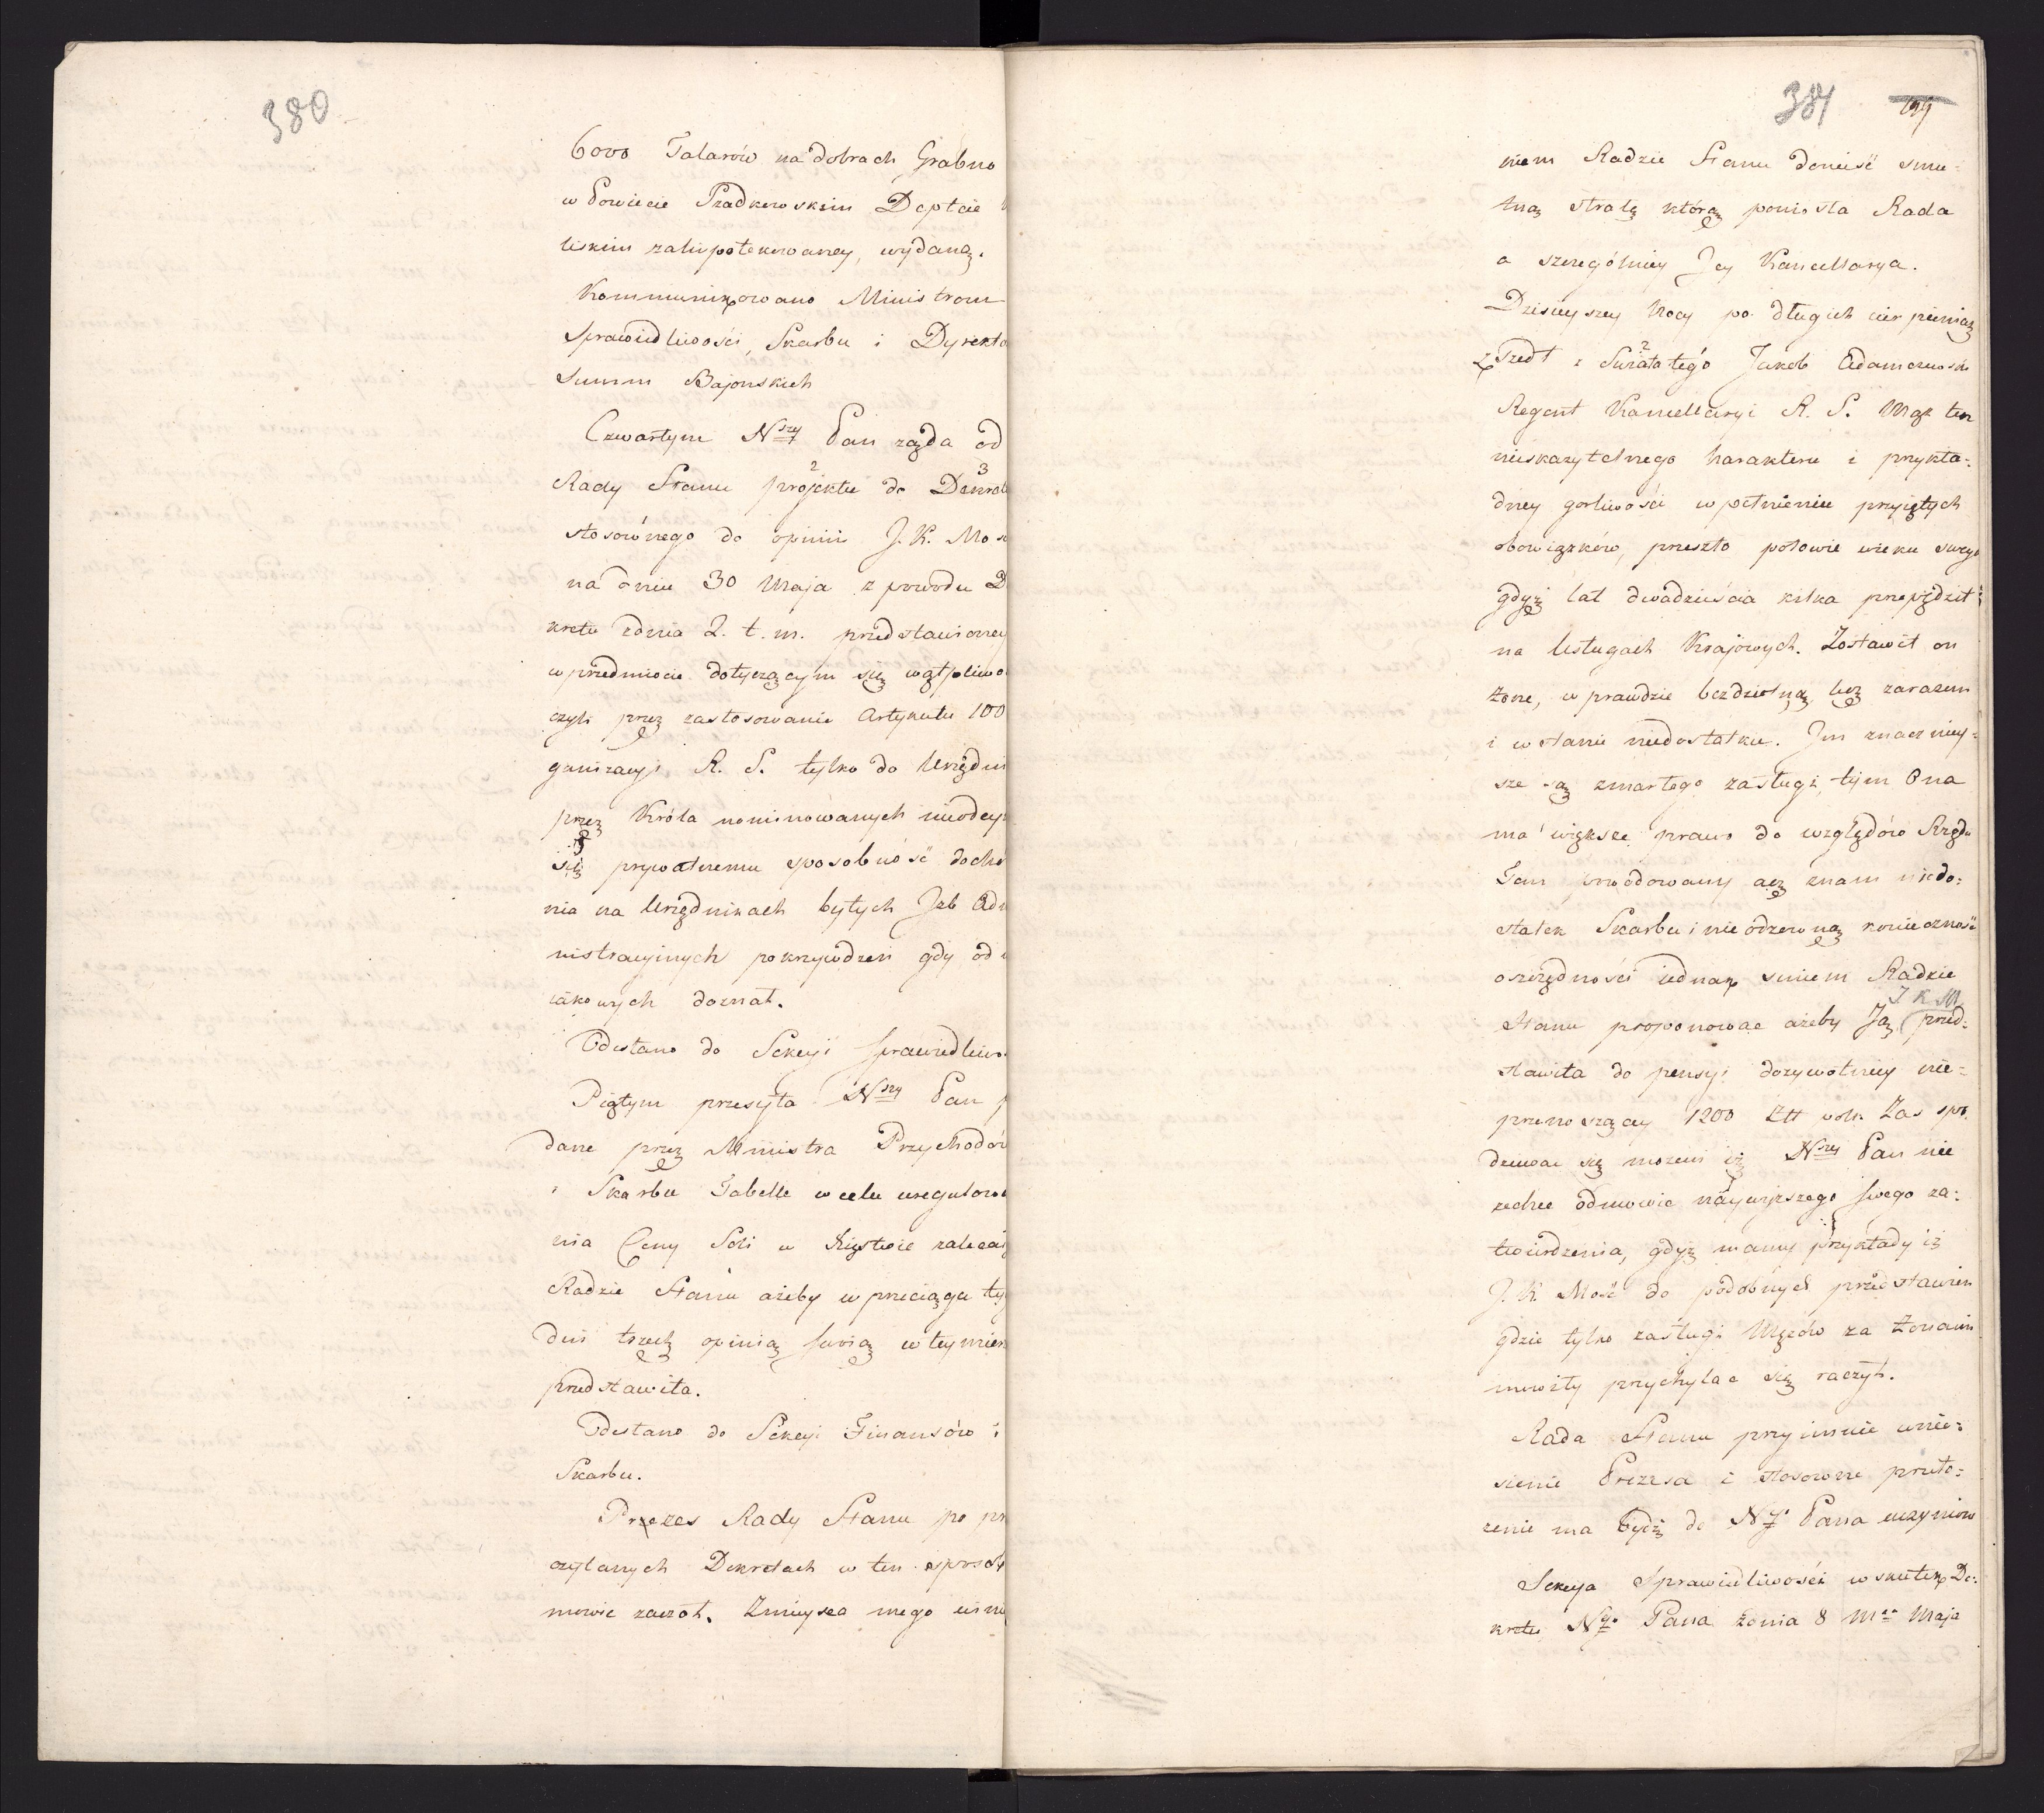 380
6000 Talarów na dobrach Grabno
w Powiecie Szadkowskim Deptcie
liskim zahypotekowaney, wydaną.
Kommunikowano Ministrom
Sprawiedliwości, Skarbu i Dyrekto
Summ Bajońskich
Czwartym Nszy Pan ząda od
Rady Stanu projektu do Dekret
stosównego do opinii J. K. Mos
na dniu 30 Maja z powodu D
kretu zdnia 2. t. m. przedstawioney
w przedmiocie dotyczącym się wątpliwo
czyli przez zastosowanie Artykułu 100
ganizacyi R. S. tylko do Urzędni
przez Króla nominowanych nieodey
się prywatnemu sposobność docho
nia na Urzędnikach byłych Izb Adm
nistracyinych pokrzywdzeń gdy od
iakowych doznał.
Odesłano do Sekcyi Sprawiedliwo
Piątym przesyła Nszy Pan p
dane przez Ministra Przychodów
i Skarbu Tabelle w celu uregulowa
nia Ceny Soli w Xięstwie zalecaią
Radzie Stanu ażeby w przeciągu ty
dni trzech opinią swoią w tey mier
przedstawiła.
Odesłano do Sekcyi Finansów i
Skarbu.
Prezes Rady Stanu po pr
czytanych Dekretach w ten sposób
mowić zaczął. Zmieysca mego usmu
381
niem Radzie Stanu donieść smu-
tną stratę którą poniosła Rada
a szczególniey Jey Kancellarya.
Dzisieyszey Nocy po długich cierpieniach
zszedł z Swiata tego Jakób Adamczewski
Regent Kancellaryi R. S. Mąż ten
nieskazytelnego harakteru i przykła-
dney gorliwości w pełnieniu przyiętych
obowiązków, przeszło połowie wieku swego
gdyż lat dwadzieścia kilka przepędził
na Usługach Krajowych. Zostawił on
żonę, w prawdzie bezdzietną lecz zarazem
i w stanie niedostatku. Im znaczniey-
sze są zmarłego zasługi, tym Ona
ma większe prawo do względów Rządu
Tem powodowany acz znam niedo-
statek Skarbu i nieodzowną konieczność
oszczędności iednak smiem Radzie
J K M
Stanu proponować ażeby Ją przed-
stawiła do pensyi dozywotniey nie-
przenoszącey 1200 Złł polk. Zas spo-
dziewać się możem iż Nszy Pan nie
zechce odmowić naywyższego swego za-
twierdzenia, gdyż mamy przykłady iż
J. K. Mość do podobnych przedstawień
gdzie tylko zasługi Mężów za Żonami
mowiły przychylać się raczył.
Rada Stanu przyimuie wnie-
sienie Prezesa i stosowne przeło-
żenie ma bydź do Ngo Pana uczynione
Sekcya Sprawiedliwości w skutek De-
kretu Ngo Pana zdnia 8 Mca Maja